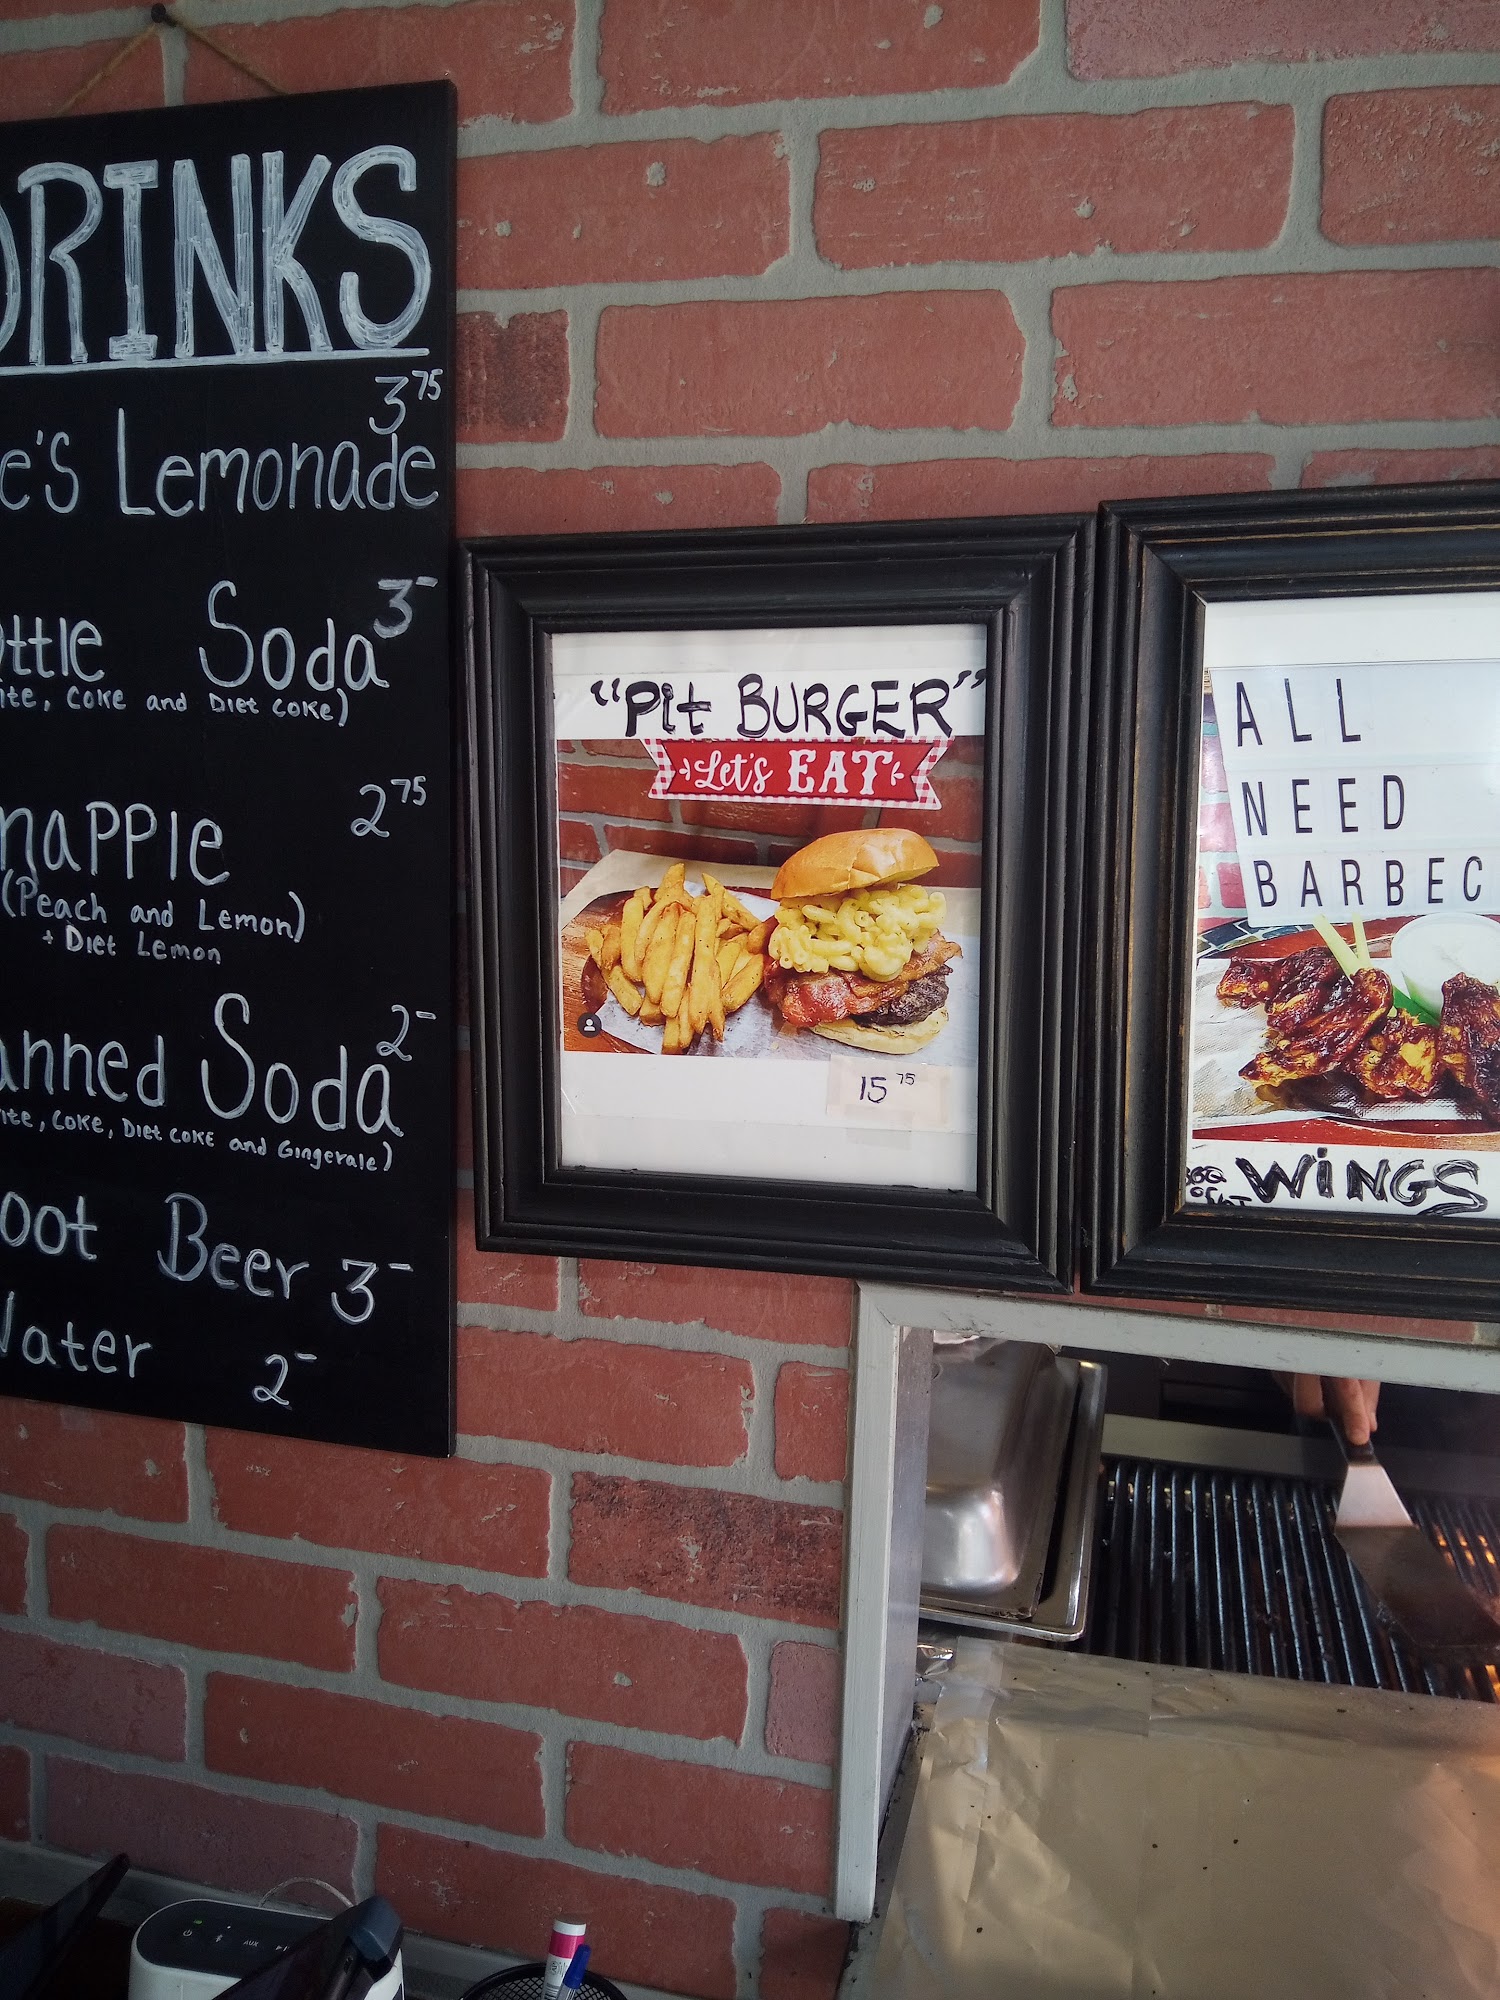 DRINKS
3 75
e's Lemonade
ottle Soda 3-
ite, Coke and Diet Coke)
napple 2 75
(Peach and Lemon)
+ Diet Lemon
anned Soda 2-
ite, Coke, Diet Coke and Gingerale)
oot Beer 3-
Water 2-
"Pit BURGER"
Let's EAT
15 75
ALL
NEED
BARBEC
BBQ WiNGS
AUX